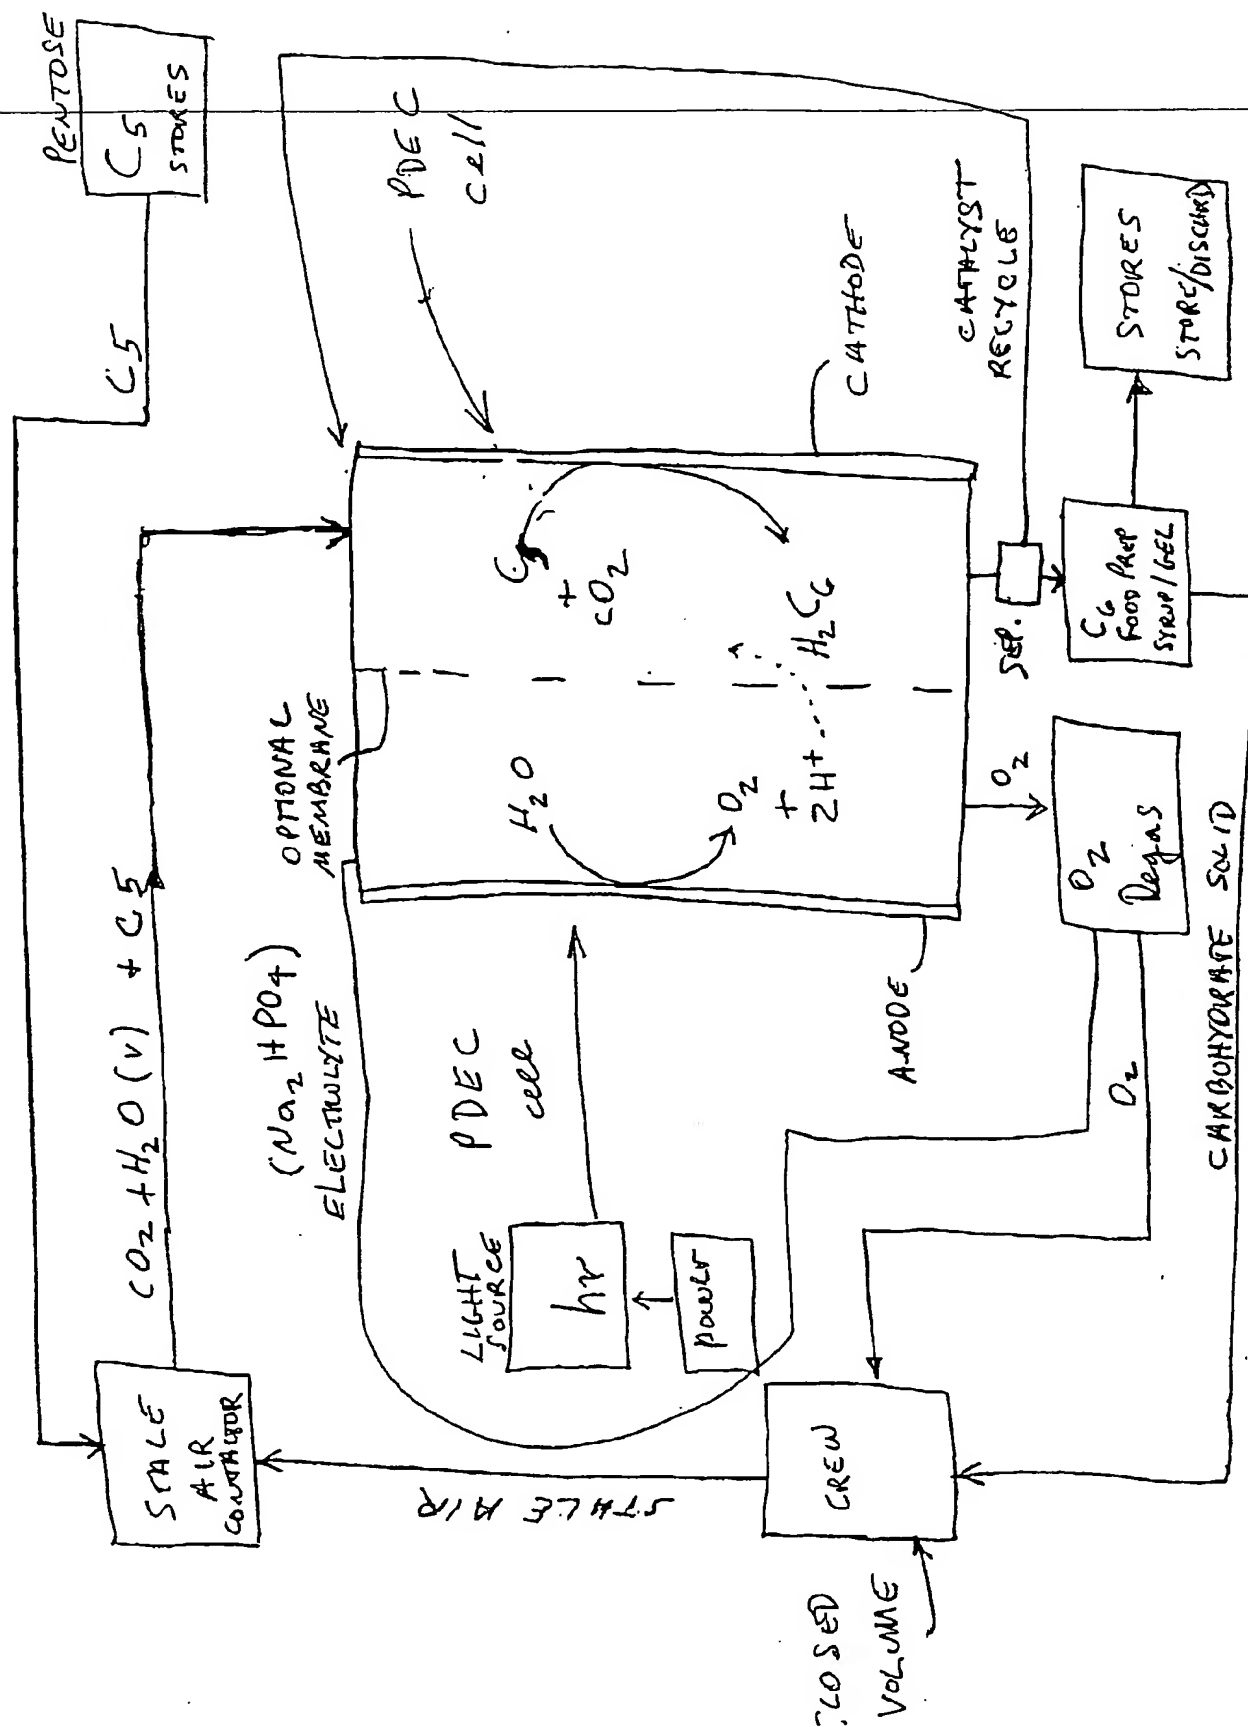 PENTOSE
C5
STORES
C5
CO2 + H2O (v) + C5
STALE
AIR
CONTACTOR
(Na2HPO4)
ELECTROLYTE
OPTIONAL
MEMBRANE
PDEC
cell
PDEC
cell
LIGHT
SOURCE
hν
power
H2O
O2
+
2H+
+
CO2
H2C6
CATHODE
ANODE
STALE AIR
CREW
VOLUME
CATALYST
RECYCLE
SEP.
C6
FOOD PREP
SYRUP/GEL
STORES
STORE/DISCARD
O2
O2
Degas
O2
CARBOHYDRATE SOLID